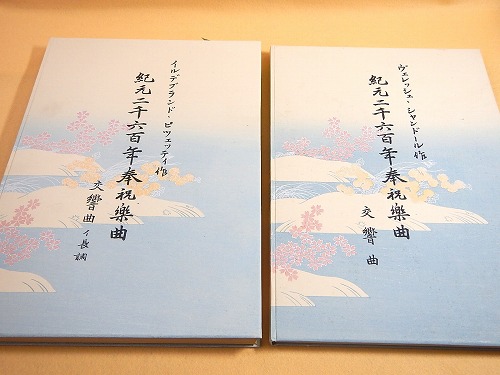 イルデブランド・ピツェッティ作
紀元二千六百年奉祝樂曲
交響曲 イ長調
ヴェレッシェ・シャンドール作
紀元二千六百年奉祝樂曲
交響曲